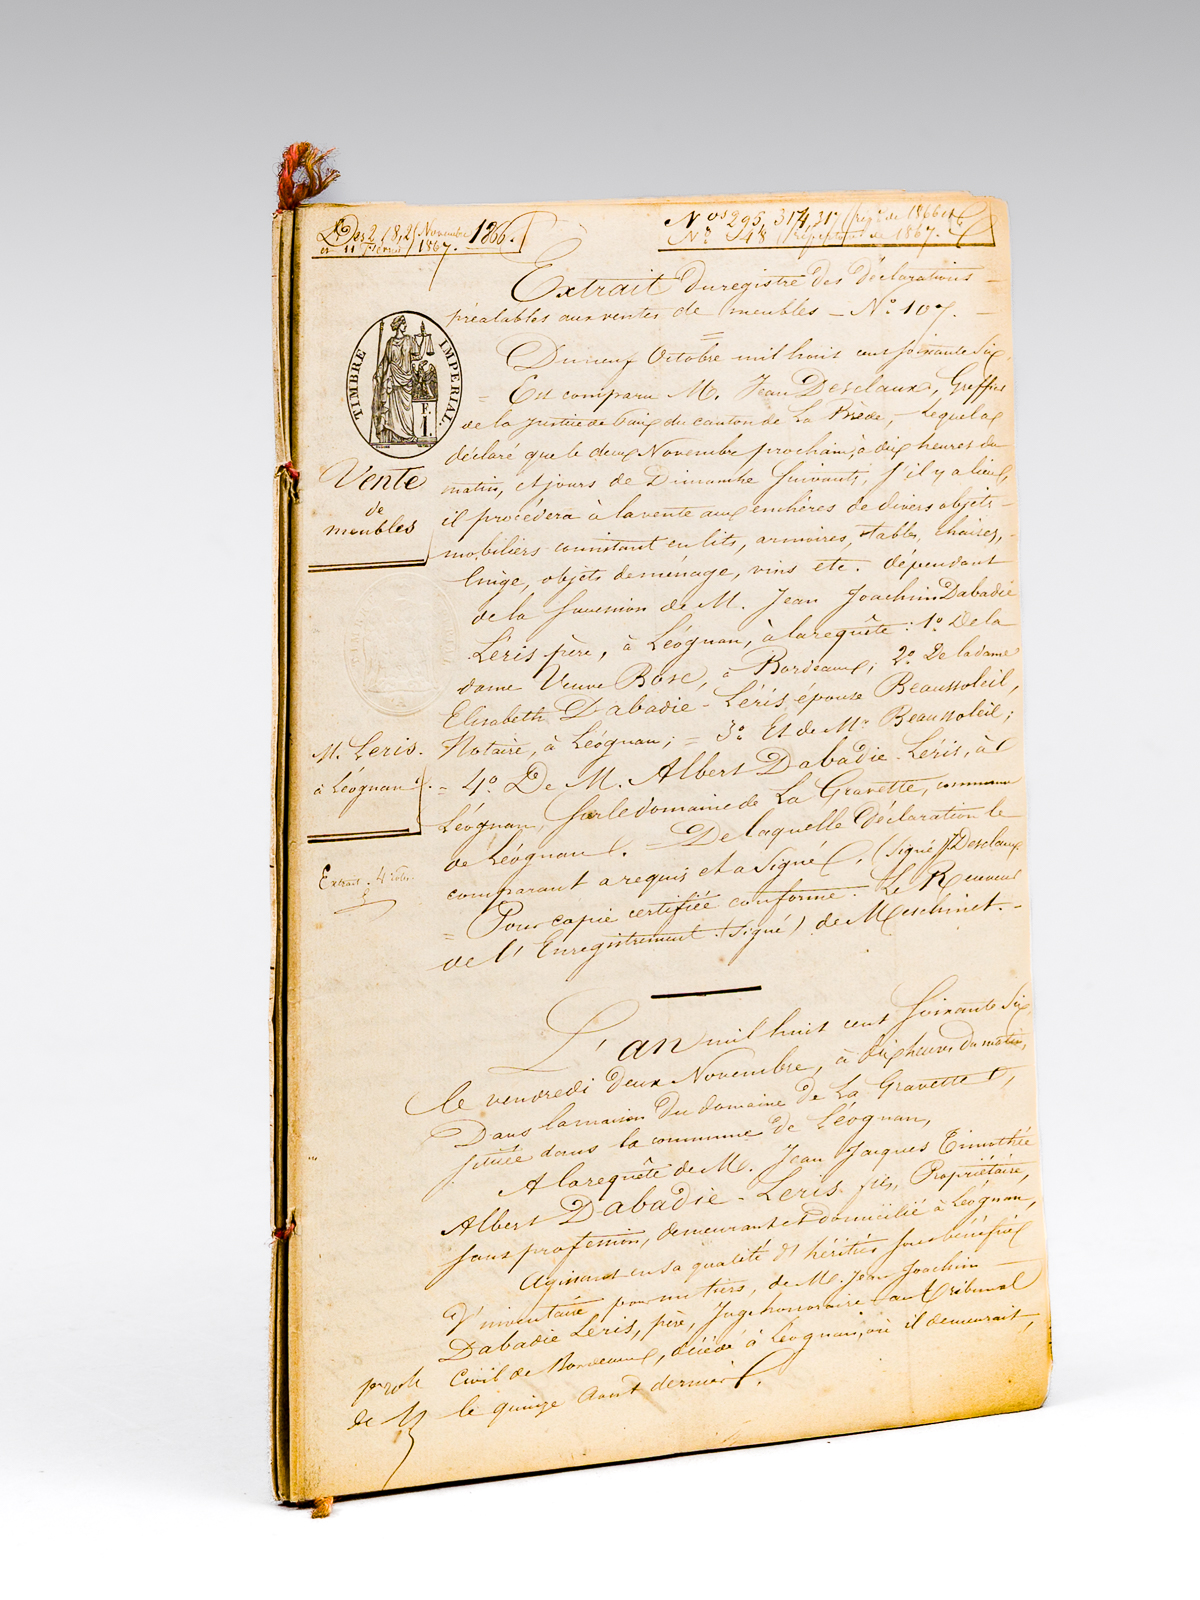 Des 2, 18, 25 Novembre 1866.
et 11 Février 1867.
Nos 295, 314, 317 (rép.re de 1866 et
No 48 (répertoire de 1867.
Extrait du registre des déclarations
préalables aux ventes de meubles — No 107. —
TIMBRE IMPÉRIAL.
E. I.
Du neuf Octobre mil huit cent soixante six,
= Est comparu M. Jean Desclaux, Greffier
de la Justice de Paix du canton de La Brède, — Lequel a
déclaré que le deux Novembre prochain, à dix heures du
matin, et jours de Dimanche suivants, s'il y a lieu,
il procédera à la vente aux enchères de divers objets
mobiliers consistant en lits, armoires, tables, chaises,
linge, objets de ménage, vins etc. dépendant
de la succession de M. Jean Joachim Dabadie
Léris père, à Léognan, à la requête : 1o De la
dame Veuve Bose, à Bordeaux; 2o De la dame
Elisabeth Dabadie-Léris épouse Beaussoleil,
Notaire, à Léognan; = 3o Et de Mr Beaussoleil;
= 4o De M. Albert Dabadie-Léris, à
Léognan, sur le domaine de La Gravette, commune
de Léognan. = De laquelle déclaration le
comparant a requis et a signé. (signé) Desclaux
= Pour copie certifiée conforme. Le Receveur
de l'Enregistrement. (signé) de Meschinet. —
Vente
de
meubles
M. Leris.
à Léognan.
Extrait
L'an mil huit cent soixante six,
le vendredi deux Novembre, à dix heures du matin,
Dans la maison du domaine de La Gravette,
située dans la commune de Léognan,
A la requête de M. Jean Jacques Timothée
Albert Dabadie-Leris fils, Propriétaire,
sans profession, demeurant et domicilié à Léognan,
Agissant en sa qualité d'héritier sous bénéfice
d'inventaire pour un tiers, de M. Jean Joachim
Dabadie Léris, père, Juge honoraire au tribunal
Civil de Bordeaux, décédé à Léognan, où il demeurait,
le quinze Août dernier.